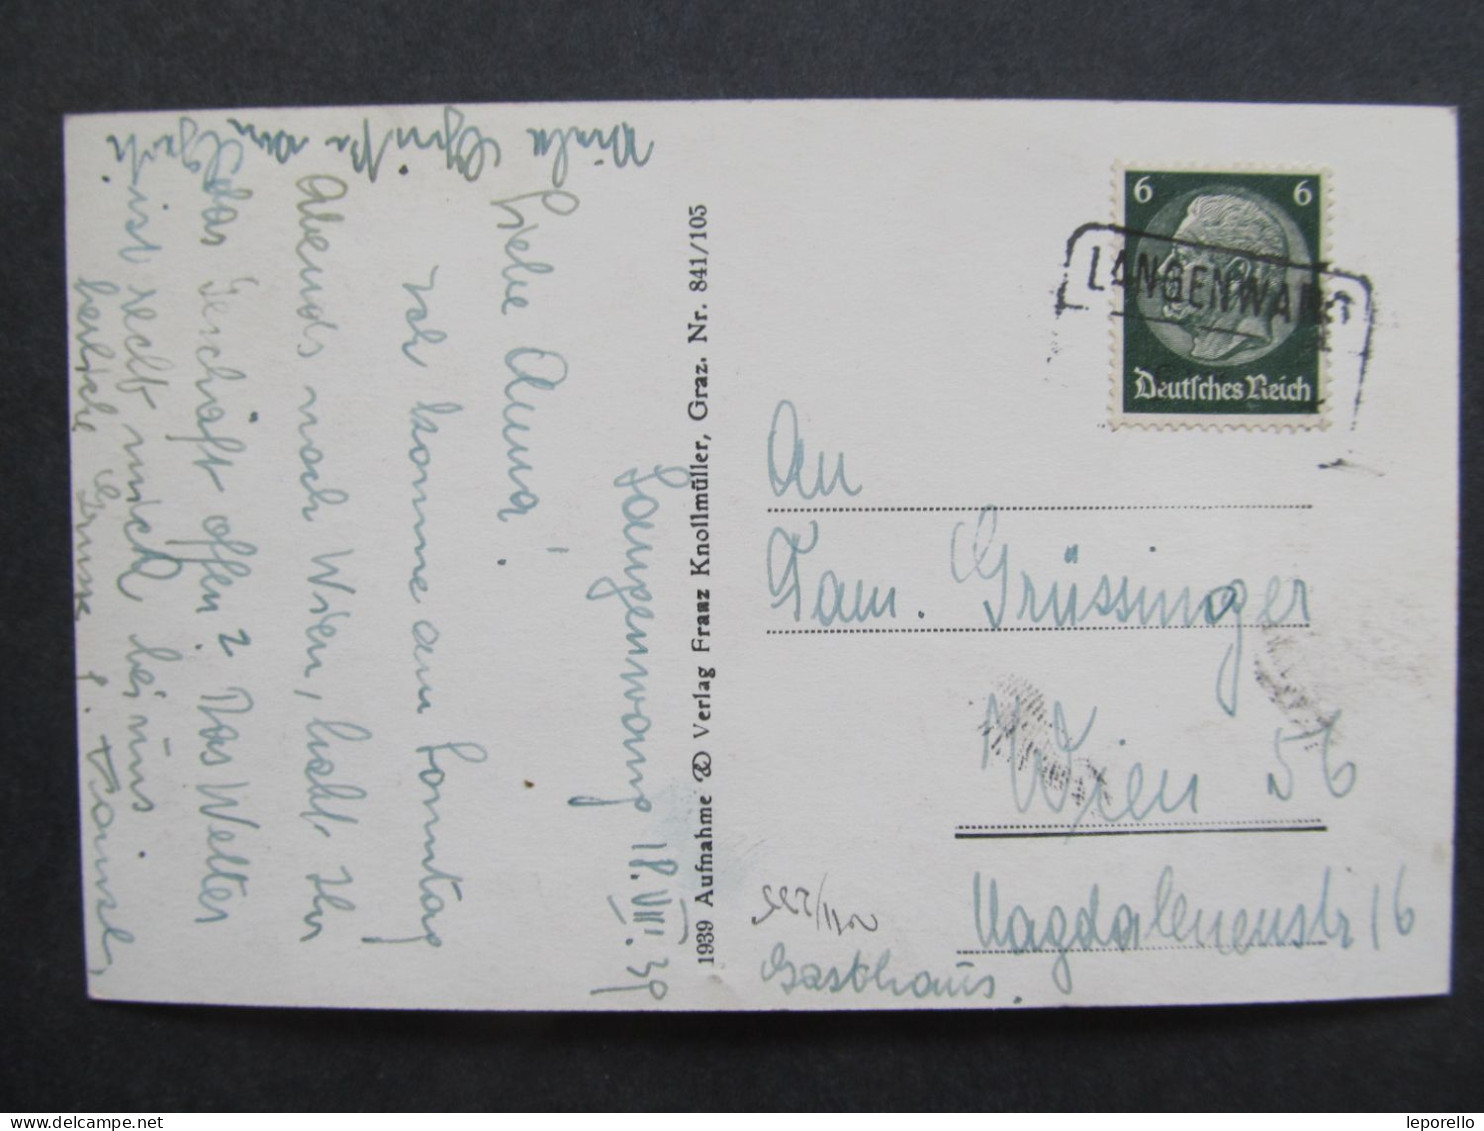 Langenwang 18. VIII. 39
Liebe Anna!
Ich komme am Sonntag
Abends nach Wien, habt Ihr
das Geschäft offen? Das Wetter
ist recht bei uns
herliche Grüsse
Viele
1939 Aufnahme & Verlag Franz Knollmüller, Graz. Nr. 841/105
6 6
Deutsches Reich
LANGENWANG
An
Fam. Grüssinger
Wien 56
Magdalenenstr 16
Gasthaus.
leporello